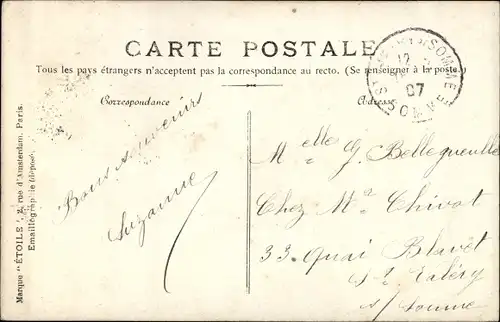 CARTE POSTALE
Tous les pays étrangers n'acceptent pas la correspondance au recto. (Se renseigner à la poste.)
Correspondance
Adresse
Bons souvenirs
Suzanne
Melle G. Bellegueulle
Chez Ma Chivot
33 Quai Blavet
St Valéry
s/ Somme
SOMME
07
Marque "ÉTOILE", rue d'Amsterdam, Paris.
Emaillographie (déposé)